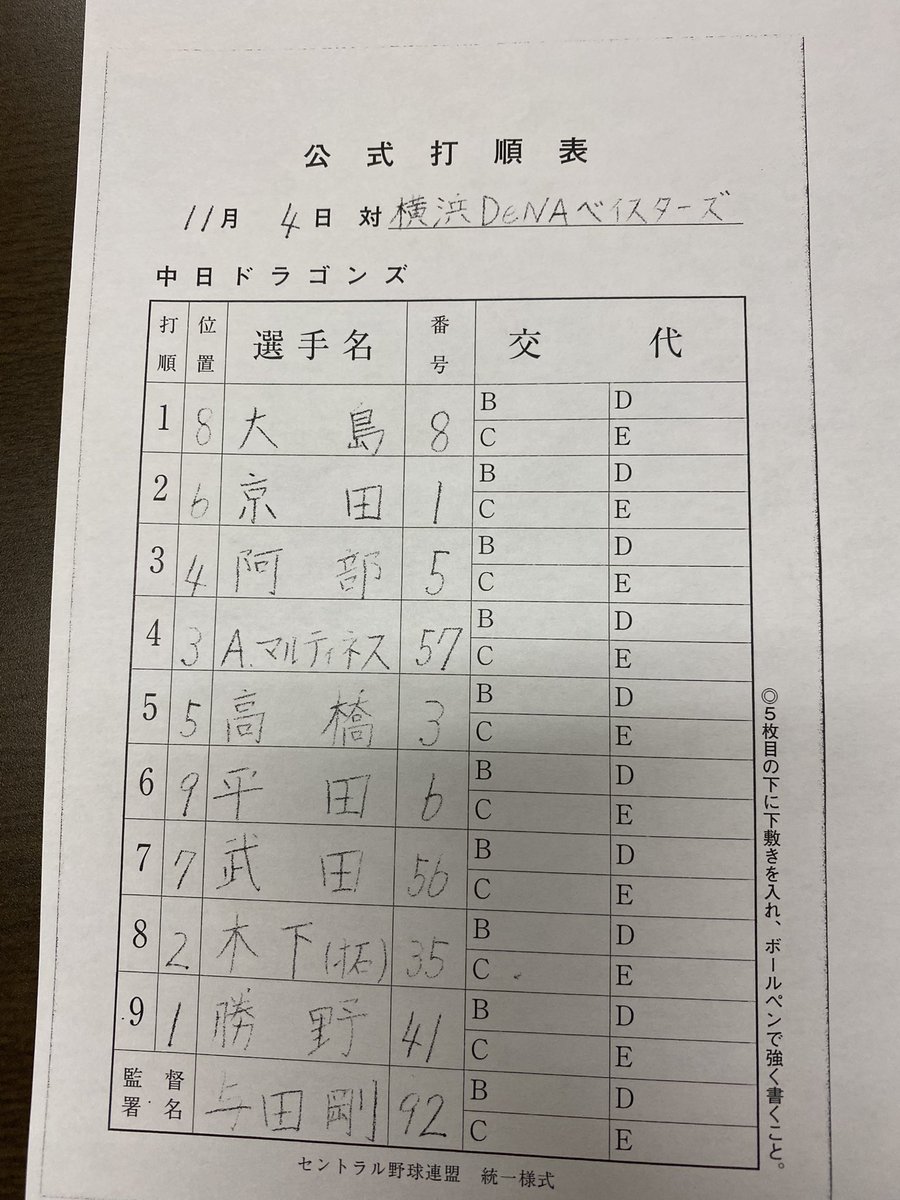 公式打順表
11月 4日 対 横浜DeNAベイスターズ
中日ドラゴンズ
打順 位置 選手名 番号 交代
1 8 大島 8 B D C E
2 6 京田 1 B D C E
3 4 阿部 5 B D C E
4 3 A.マルティネス 57 B D C E
5 5 高橋 3 B D C E
6 9 平田 6 B D C E
7 7 武田 56 B D C E
8 2 木下(拓) 35 B D C E
9 1 勝野 41 B D C E
監督署名 与田剛 92 B D C E
セントラル野球連盟 統一様式
◎5枚目の下に下敷きを入れ、ボールペンで強く書くこと。